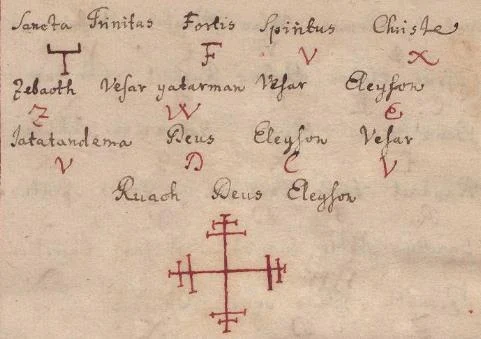 Sancta Trinitas Fortis Spiritus Christe
T F V X
Zebaoth Vesar yatarman Vesar Eleyson
Z W E
Jatatandema Deus Eleyson Vesar
V D C V
Ruach Deus Eleyson